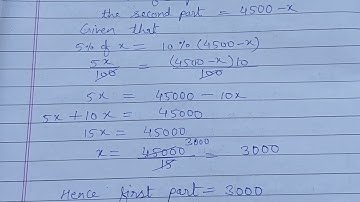 the second part = 4500-x
Given that
5% of x = 10% (4500-x)
5x/100 = (4500-x)10/100
5x = 45000 - 10x
5x + 10x = 45000
15x = 45000
x = 45000/15 3000 = 3000
Hence first part = 3000